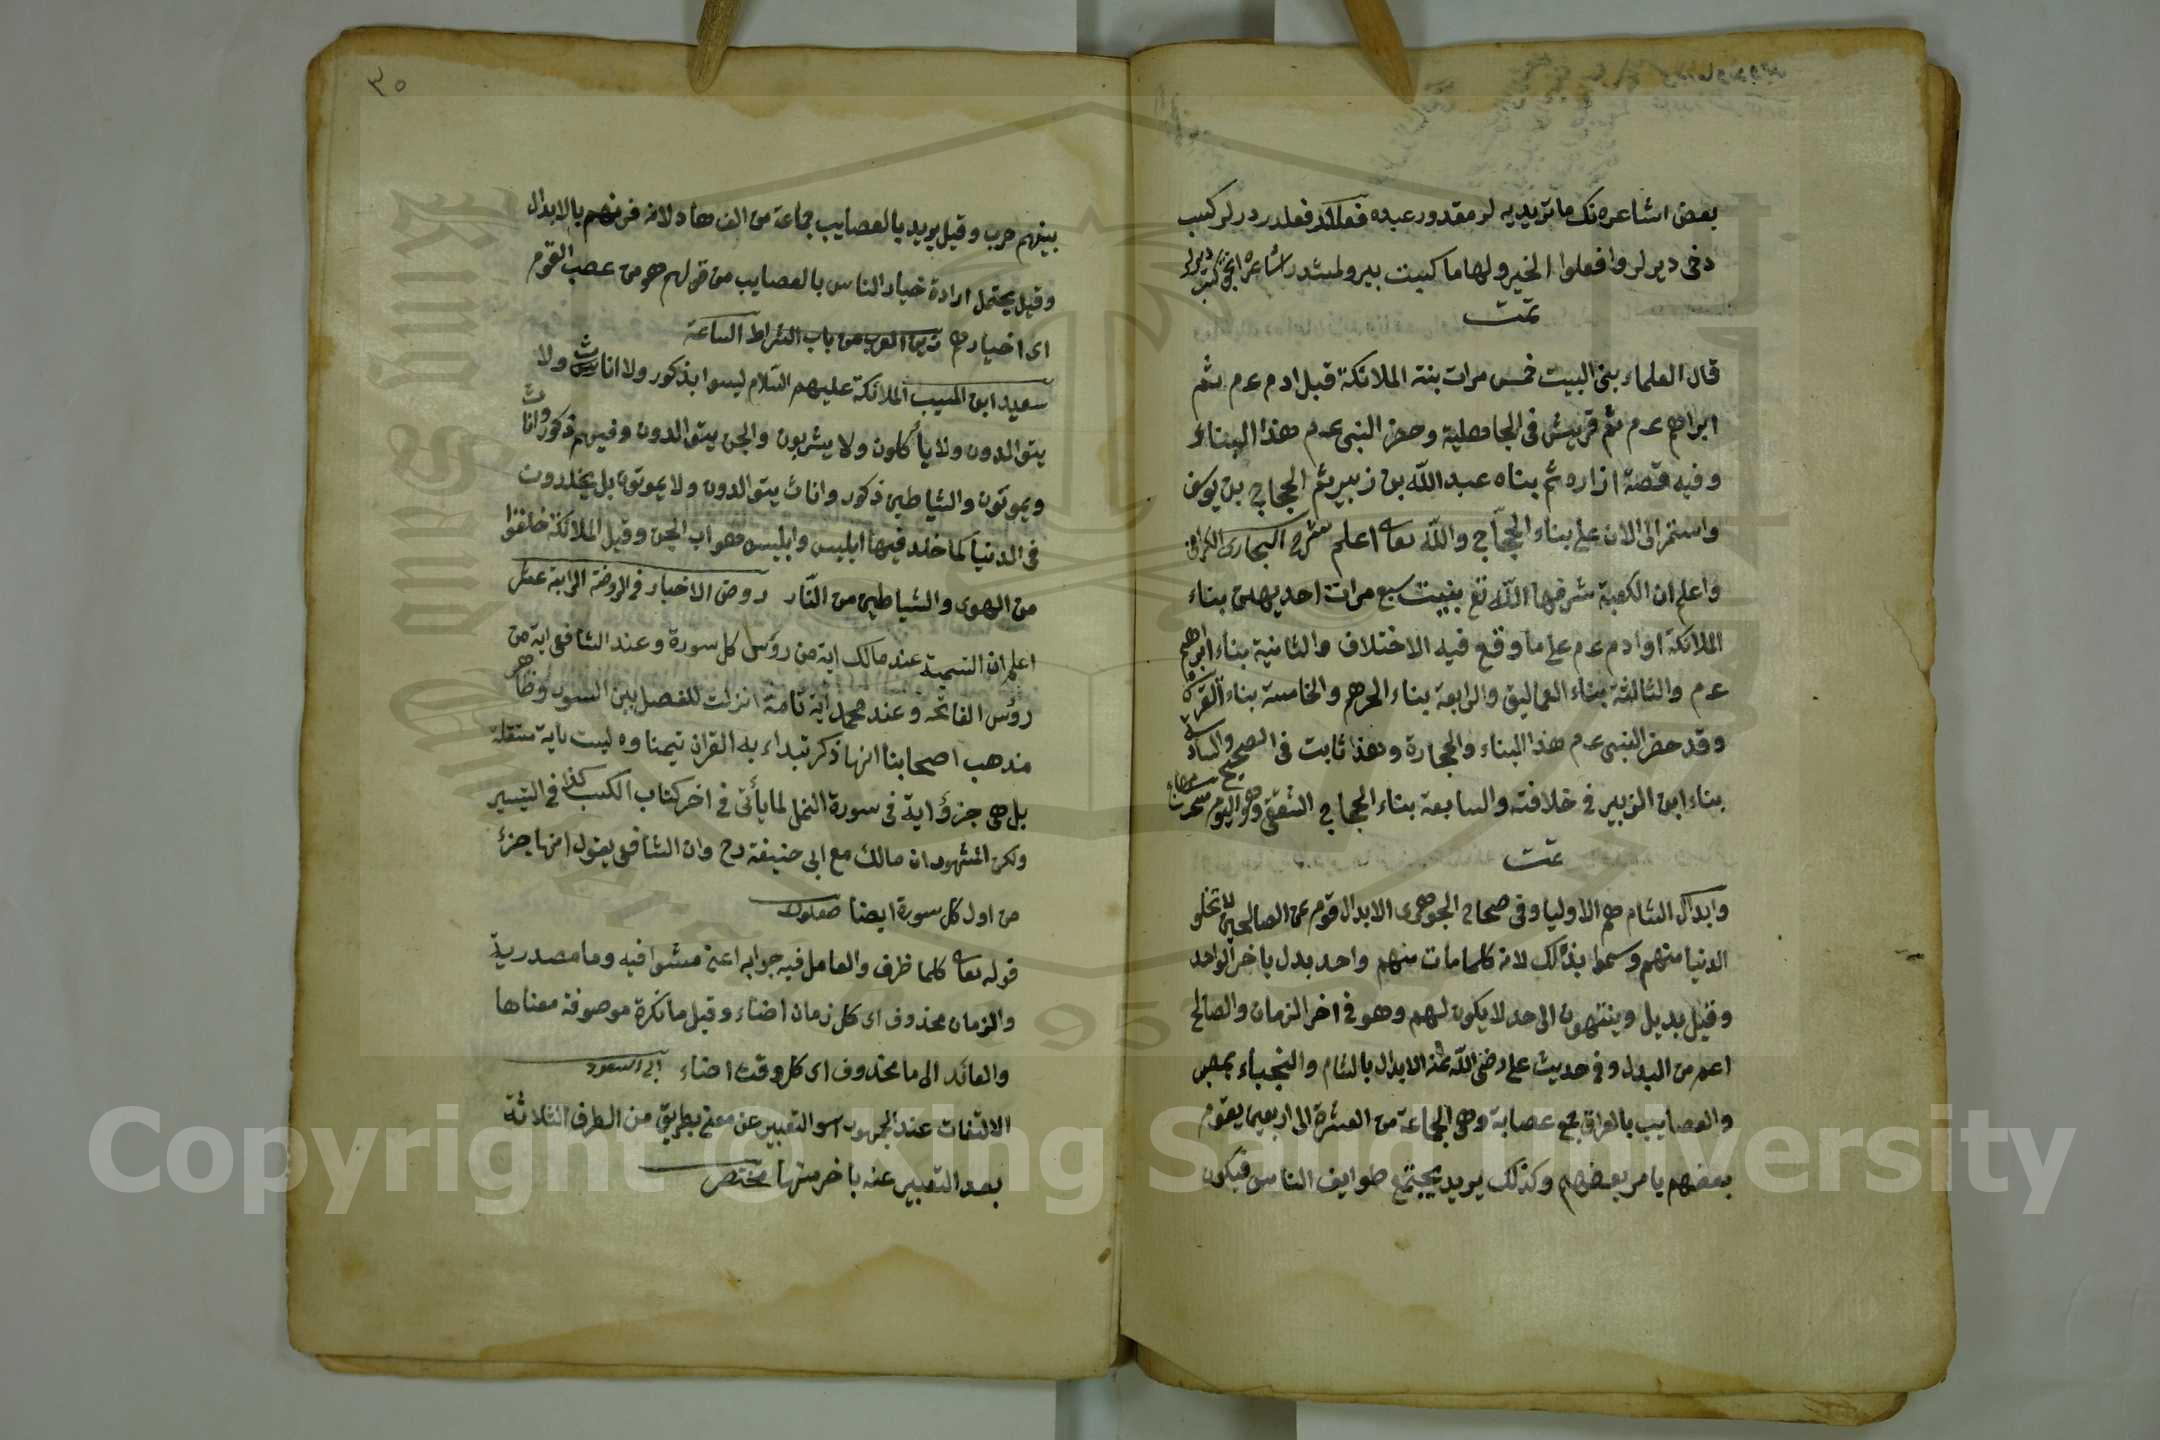 بعض اشاعره نك ماتريديه لر مقدور عبده فعلكلدر فعلدر ديرلر كسب
دخى ديرلر وافعلوا الخير ولها ما كسبت
تمت
قال العلماء بنى البيت خمس مرات بنته الملائكة قبل ادم عم ثم
ابراهيم عم ثم قريش فى الجاهلية وحضر النبى عم هذا البناء
وفيه قصة ازاره ثم بناه عبد الله بن زبير ثم الحجاج بن يوسف
واستمر الى الان على بناء الحجاج والله تعالى اعلم شرح البخارى الكرمانى
واعلم ان الكعبة شرفها الله تع بنيت سبع مرات احديهن بناء
الملائكة او ادم عم على ما وقع فيه الاختلاف والثانية بناء ابرهيم
عم والثالثة بناء العماليق والرابعة بناء الجرهم والخامسة بناء القريش
وقد حضر النبى عم هذا البناء والحجارة وهذا ثابت فى الصحيح والسادسة
بناء ابن الزبير فى خلافته والسابعة بناء الحجاج الثقفى وهو اليوم
تمت
وابدال الشام هم الاوليا وفى صحاح الجوهرى الابدال قوم من الصالحين لا تخلو
الدنيا منهم وسموا بذلك لانه كلما مات منهم واحد بدل باخر الواحد
وقيل بديل وينتهون الى حد لا يكون لهم وهو فى اخر الزمان والصالح
اعم من البدل وفى حديث على رضى الله عنه الابدال بالشام والنجباء بمصر
والعصايب بالعراق جمع عصابة وهى الجماعة من العشرة الى اربعين يقوم
بعضهم يامر بعضهم وكذلك يريد يجتمع طوايف الناس فيكون
٣٥
بينهم حرب وقيل يريد بالعصايب جماعة من الزهاد لانه قرنهم بالابدال
وقيل يحتمل ارادة خيار الناس بالعصايب من قولهم هو من عصب القوم
اى اخيارهم من باب اشراط الساعة
سعيد ابن المسيب الملائكة عليهم السلام ليسوا بذكور ولا اناث ولا
يتوالدون ولا يأكلون ولا يشربون والجن يتوالدون وفيهم ذكور واناث
ويموتون والشياطين ذكور واناث يتوالدون ولا يموتون بل يخلدون
فى الدنيا كما خلد فيها ابليس وابليس هو اب الجن وقيل الملائكة خلقوا
من الهوى والشياطين من النار روض الاخيار فى الروضة الرابعة عشر
اعلم ان التسمية عند مالك اية من رؤس كل سورة وعند الشافعى اية من
رؤس الفاتحه وعند محمد اية تامة انزلت للفصل بين السور وظاهر
مذهب اصحابنا انها ذكر تبداء به القران تيمنا وليست باية مستقلة
بل هى جزؤ اية فى سورة النمل لما يأتى فى اخر كتاب الكسب كذا فى التيسير
ولكن المشهور ان مالك مع ابى حنيفة رح وان الشافعى يقول انها جزئ
من اول كل سورة ايضا
قوله تعالى كلما ظرف والعامل فيه جوابه اعنى مشوا فيه وما مصدرية
والزمان محذوف اى كل زمان اضاء وقيل ما نكرة موصوفة معناها
والعائد الى ما محذوف اى كل وقت اضاء ابى السعود
الالتفات عند الجمهور هو التعبير عن معنى بطريق من الطرف الثلاثة
بعد التعبير عنه باخر منها مختصر
King Saud University
1957
Copyright © King Saud University